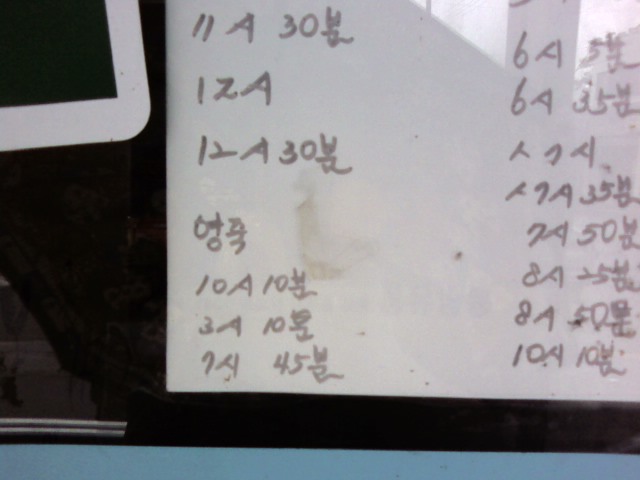 11시 30분
12시
12시 30분
영죽
10시 10분
3시 10분
7시 45분
6시 5분
6시 35분
7시
7시 35분
7시 50분
8시 25분
8시 50분
10시 10분